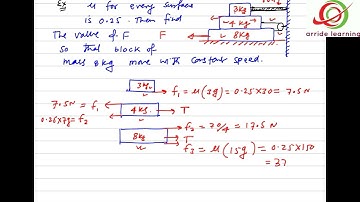 Ex μ for every surface
is 0.25. Then find
The value of F
so that block of
mass 8kg move with constant speed.
F
3kg
4 kg
8kg
arride learning
3kg f₁ = μ(3g) = 0.25×30 = 7.5N
7.5N = f₁ 4 kg. T
0.25×7g = f₂
8kg f₂ = 70/4 = 17.5N
T
f₃ = μ(15g) = 0.25×150
= 37